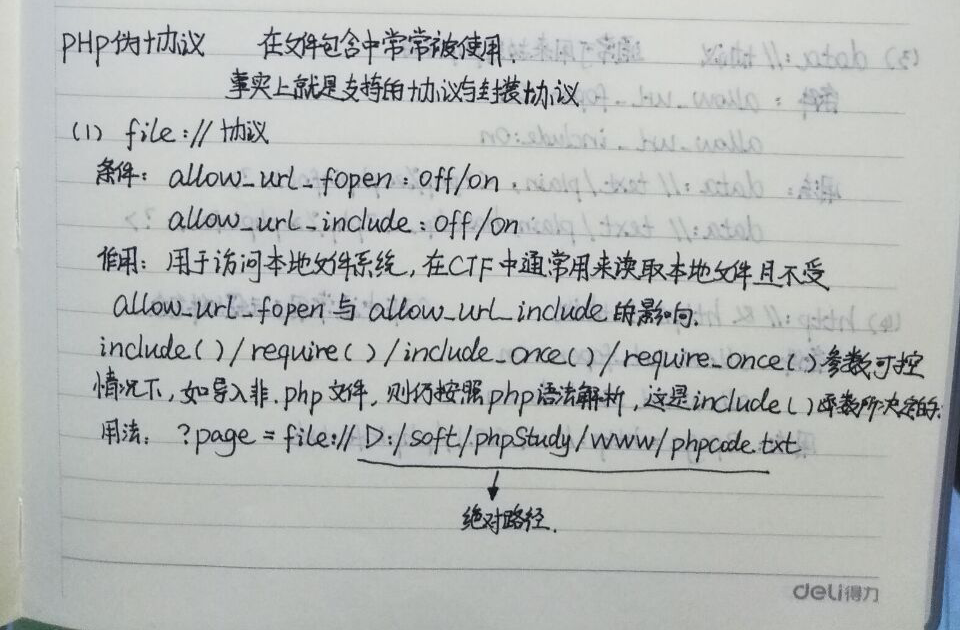 PHP伪协议 在文件包含中常常被使用.
事实上就是支持的协议与封装协议
(1) file:// 协议
条件: allow_url_fopen: off/on
allow_url_include: off/on
作用: 用于访问本地文件系统, 在CTF中通常用来读取本地文件且不受
allow_url_fopen与allow_url_include的影响.
include()/require()/include_once()/require_once()参数可控
情况下, 如导入非.php文件, 则仍按照php语法解析, 这是include()函数所决定的.
用法: ?page = file://D:/soft/phpStudy/www/phpcode.txt
绝对路径.
deli得力